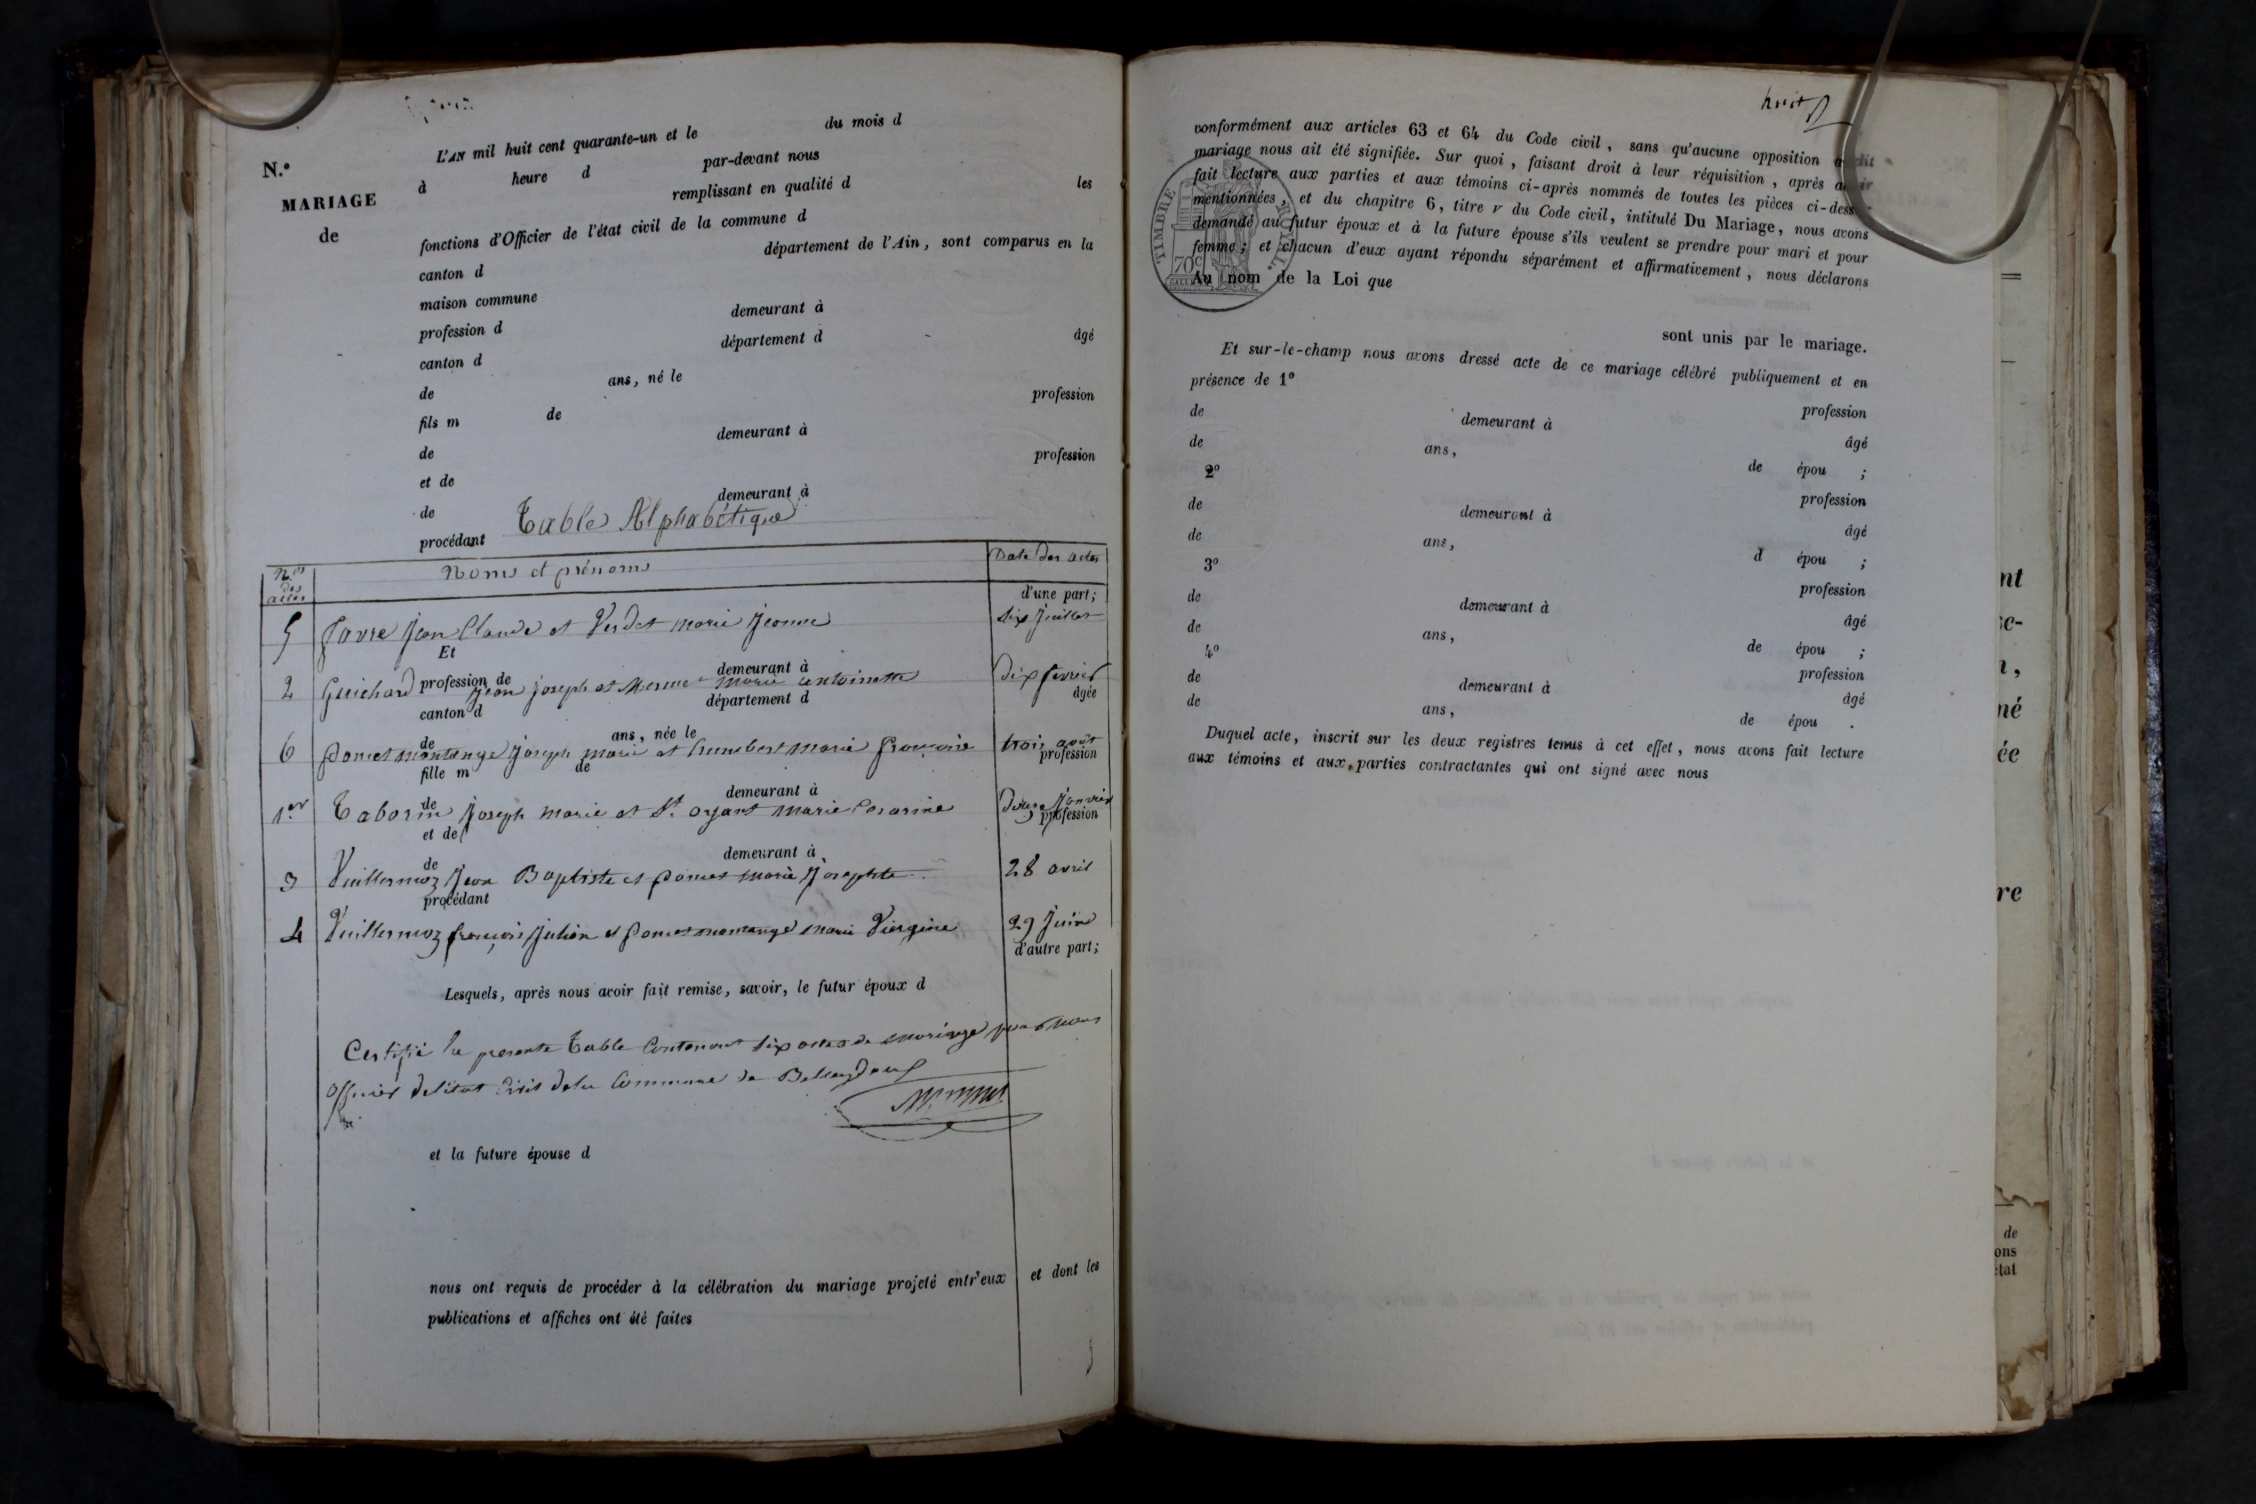 L'AN mil huit cent quarante-un et le du mois d
N.º
à heure d par-devant nous
MARIAGE
remplissant en qualité d les
de
fonctions d'Officier de l'état civil de la commune d
canton d département de l'Ain, sont comparus en la
maison commune
profession d demeurant à
canton d département d âgé
de ans, né le
fils m de profession
de demeurant à
et de profession
de demeurant à
procédant Table Alphabétique
Nos des actes Noms et prénoms Date des actes
d'une part;
5 Favre Jean Claude et Verdet marie Jeanne six Juillet
Et
profession de demeurant à
2 Guichard Jean joseph et Mermet marie antoinette Dix fevrier
canton d département d âgée
de ans, née le
6 Poncet montange Joseph marie et humbert marie françoise trois août
fille m de profession
de demeurant à
1er Taborin Joseph marie et St. oyant marie Cesarine Douze Janvier
et de profession
de demeurant à
3 Vuillermoz Jean Baptiste et Poncet marie Josephte 28 avril
procédant
4 Vuillermoz françois Julien et Poncet montange marie Virginie 29 Juin
d'autre part;
Lesquels, après nous avoir fait remise, savoir, le futur époux d
Certifié la presente Table Contenant six actes de mariage par nous
Officier de l'état Civil de la Commune de Belleydoux
et la future épouse d
nous ont requis de procéder à la célébration du mariage projeté entr'eux et dont les
publications et affiches ont été faites
huit
conformément aux articles 63 et 64 du Code civil, sans qu'aucune opposition audit
mariage nous ait été signifiée. Sur quoi, faisant droit à leur réquisition, après avoir
fait lecture aux parties et aux témoins ci-après nommés de toutes les pièces ci-dessus
mentionnées, et du chapitre 6, titre v du Code civil, intitulé Du Mariage, nous avons
demandé au futur époux et à la future épouse s'ils veulent se prendre pour mari et pour
femme; et chacun d'eux ayant répondu séparément et affirmativement, nous déclarons
Au nom de la Loi que
TIMBRE ROYAL.
70c
sont unis par le mariage.
Et sur-le-champ nous avons dressé acte de ce mariage célébré publiquement et en
présence de 1º
de profession
demeurant à
de ans, âgé
2º de épou ;
de profession
demeurant à
de ans, âgé
3º d épou ;
de profession
demeurant à
de ans, âgé
4º de épou ;
de profession
demeurant à
de ans, âgé
de épou .
Duquel acte, inscrit sur les deux registres tenus à cet effet, nous avons fait lecture
aux témoins et aux parties contractantes qui ont signé avec nous
nt
né
ée
re
de
ons
état